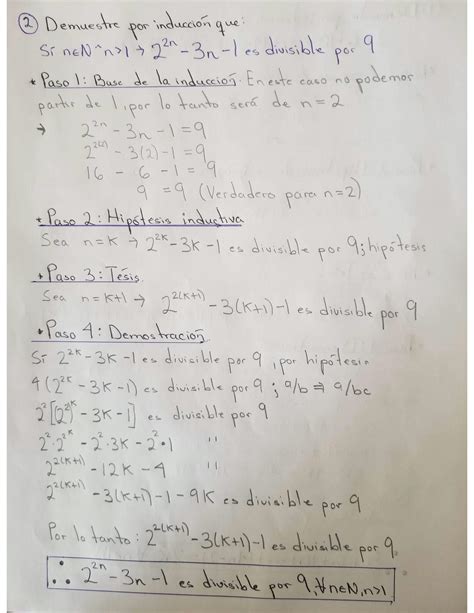 ② Demuestre por inducción que:
Si n∈N ^ n>1 → 2²ⁿ - 3n - 1 es divisible por 9
* Paso 1: Base de la inducción: En este caso no podemos
partir de 1, por lo tanto será de n = 2
→ 2²ⁿ - 3n - 1 = 9
2²⁽²⁾ - 3(2) - 1 = 9
16 - 6 - 1 = 9
9 = 9 (Verdadero para n=2)
* Paso 2: Hipótesis inductiva
Sea n=K → 2^2K - 3K - 1 es divisible por 9; hipótesis
* Paso 3: Tésis
Sea n=K+1 → 2^2(K+1) - 3(K+1) - 1 es divisible por 9
* Paso 4: Demostración
Si 2^2K - 3K - 1 es divisible por 9, por hipótesis
4(2^2K - 3K - 1) es divisible por 9; a/b ⇒ a/bc
2²[(2²)^K - 3K - 1] es divisible por 9
2²·2^2^K - 2²·3K - 2²·1 "
2^2(K+1) - 12K - 4 "
2^2(K+1) - 3(K+1) - 1 - 9K es divisible por 9
Por lo tanto: 2^2(K+1) - 3(K+1) - 1 es divisible por 9.
∴ 2²ⁿ - 3n - 1 es divisible por 9, ∀n∈N, n>1